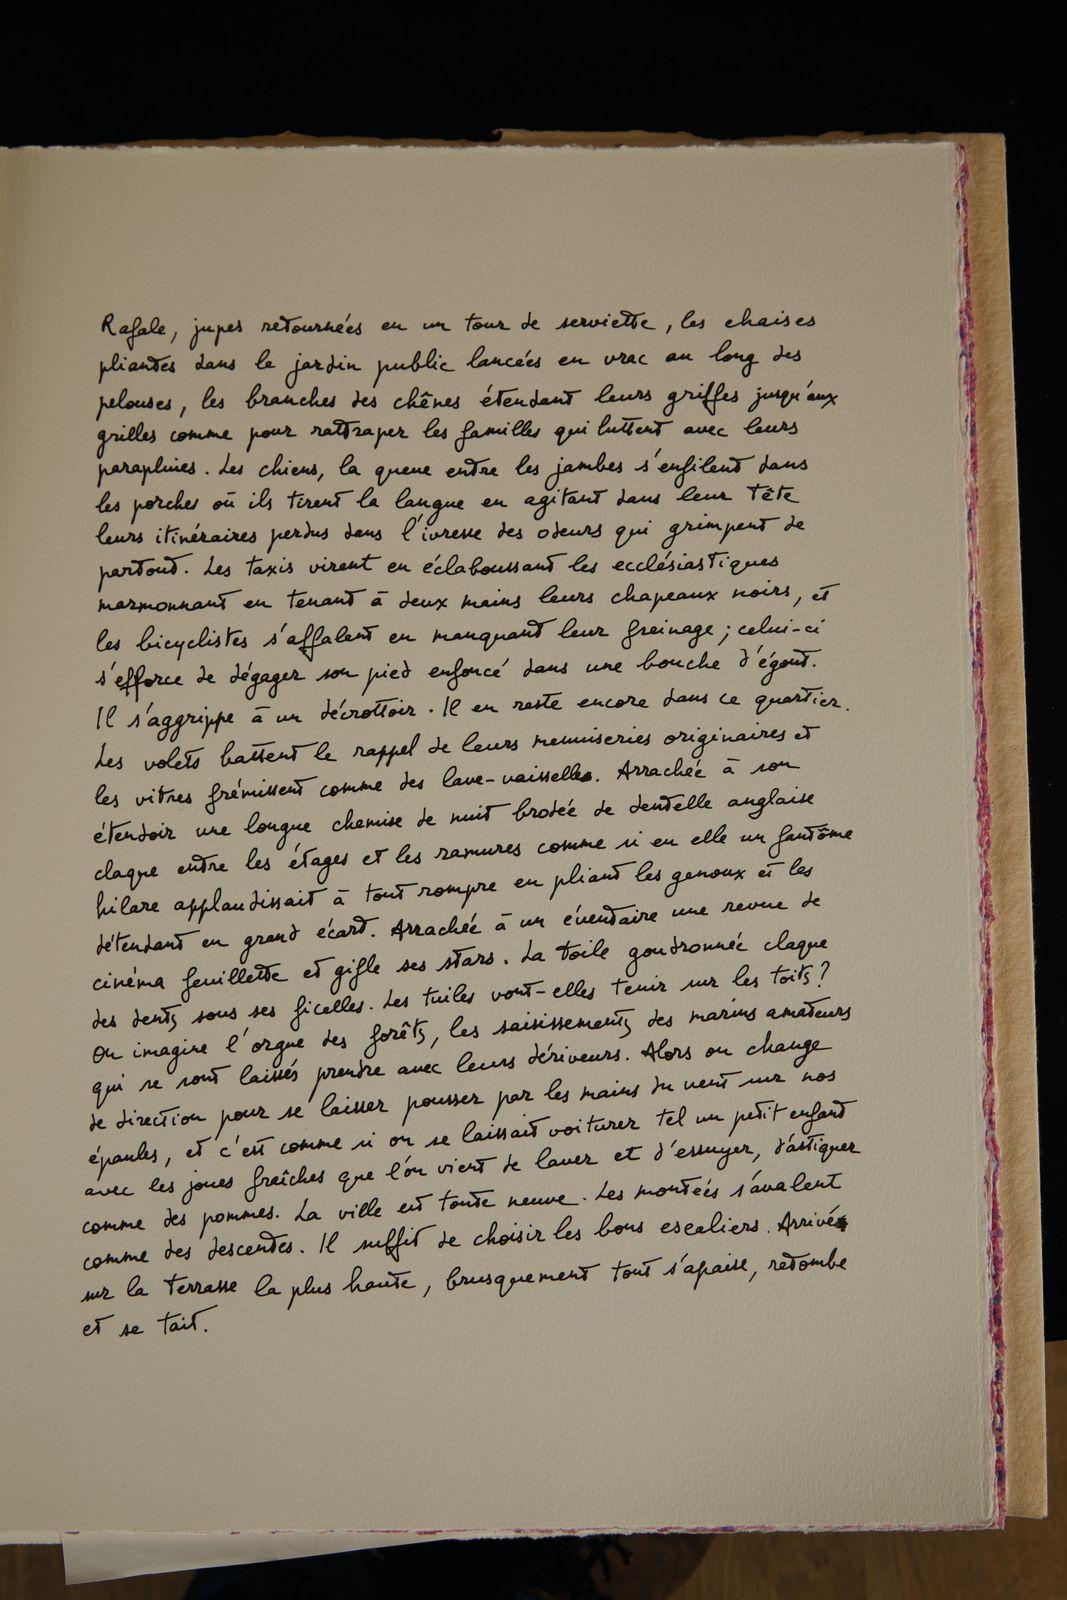 Rafale, jupes retournées en un tour de serviette, les chaises
pliantes dans le jardin public lancées en vrac au long des
pelouses, les branches des chênes étendant leurs griffes jusqu'aux
grilles comme pour rattraper les familles qui luttent avec leurs
parapluies. Les chiens, la queue entre les jambes s'enfilent dans
les porches où ils tirent la langue en agitant dans leur tête
leurs itinéraires perdus dans l'ivresse des odeurs qui grimpent de
partout. Les taxis virent en éclaboussant les ecclésiastiques
marmonnant en tenant à deux mains leurs chapeaux noirs, et
les bicyclistes s'affalent en manquant leur freinage ; celui-ci
s'efforce de dégager son pied enfoncé dans une bouche d'égout.
Il s'aggrippe à un décrottoir. Il en reste encore dans ce quartier.
Les volets battent le rappel de leurs menuiseries originaires et
les vitres frémissent comme des lave-vaisselles. Arrachée à son
étendoir une longue chemise de nuit brodée de dentelle anglaise
claque entre les étages et les ramures comme si en elle un fantôme
hilare applaudissait à tout rompre en pliant les genoux et les
détendant en grand écart. Arrachée à un éventaire une revue de
cinéma feuillette et gifle ses stars. La toile goudronnée claque
des dents sous ses ficelles. Les tuiles vont-elles tenir sur les toits ?
On imagine l'orgue des forêts, les saisissements des marins amateurs
qui se sont laissés prendre avec leurs dériveurs. Alors on change
de direction pour se laisser pousser par les mains du vent sur nos
épaules, et c'est comme si on se laissait voiturer tel un petit enfant
avec les joues fraîches que l'on vient de laver et d'essuyer, d'astiquer
comme des pommes. La ville est toute neuve. Les montées s'avalent
comme des descentes. Il suffit de choisir les bons escaliers. Arrivé
sur la terrasse la plus haute, brusquement tout s'apaise, retombe
et se tait.